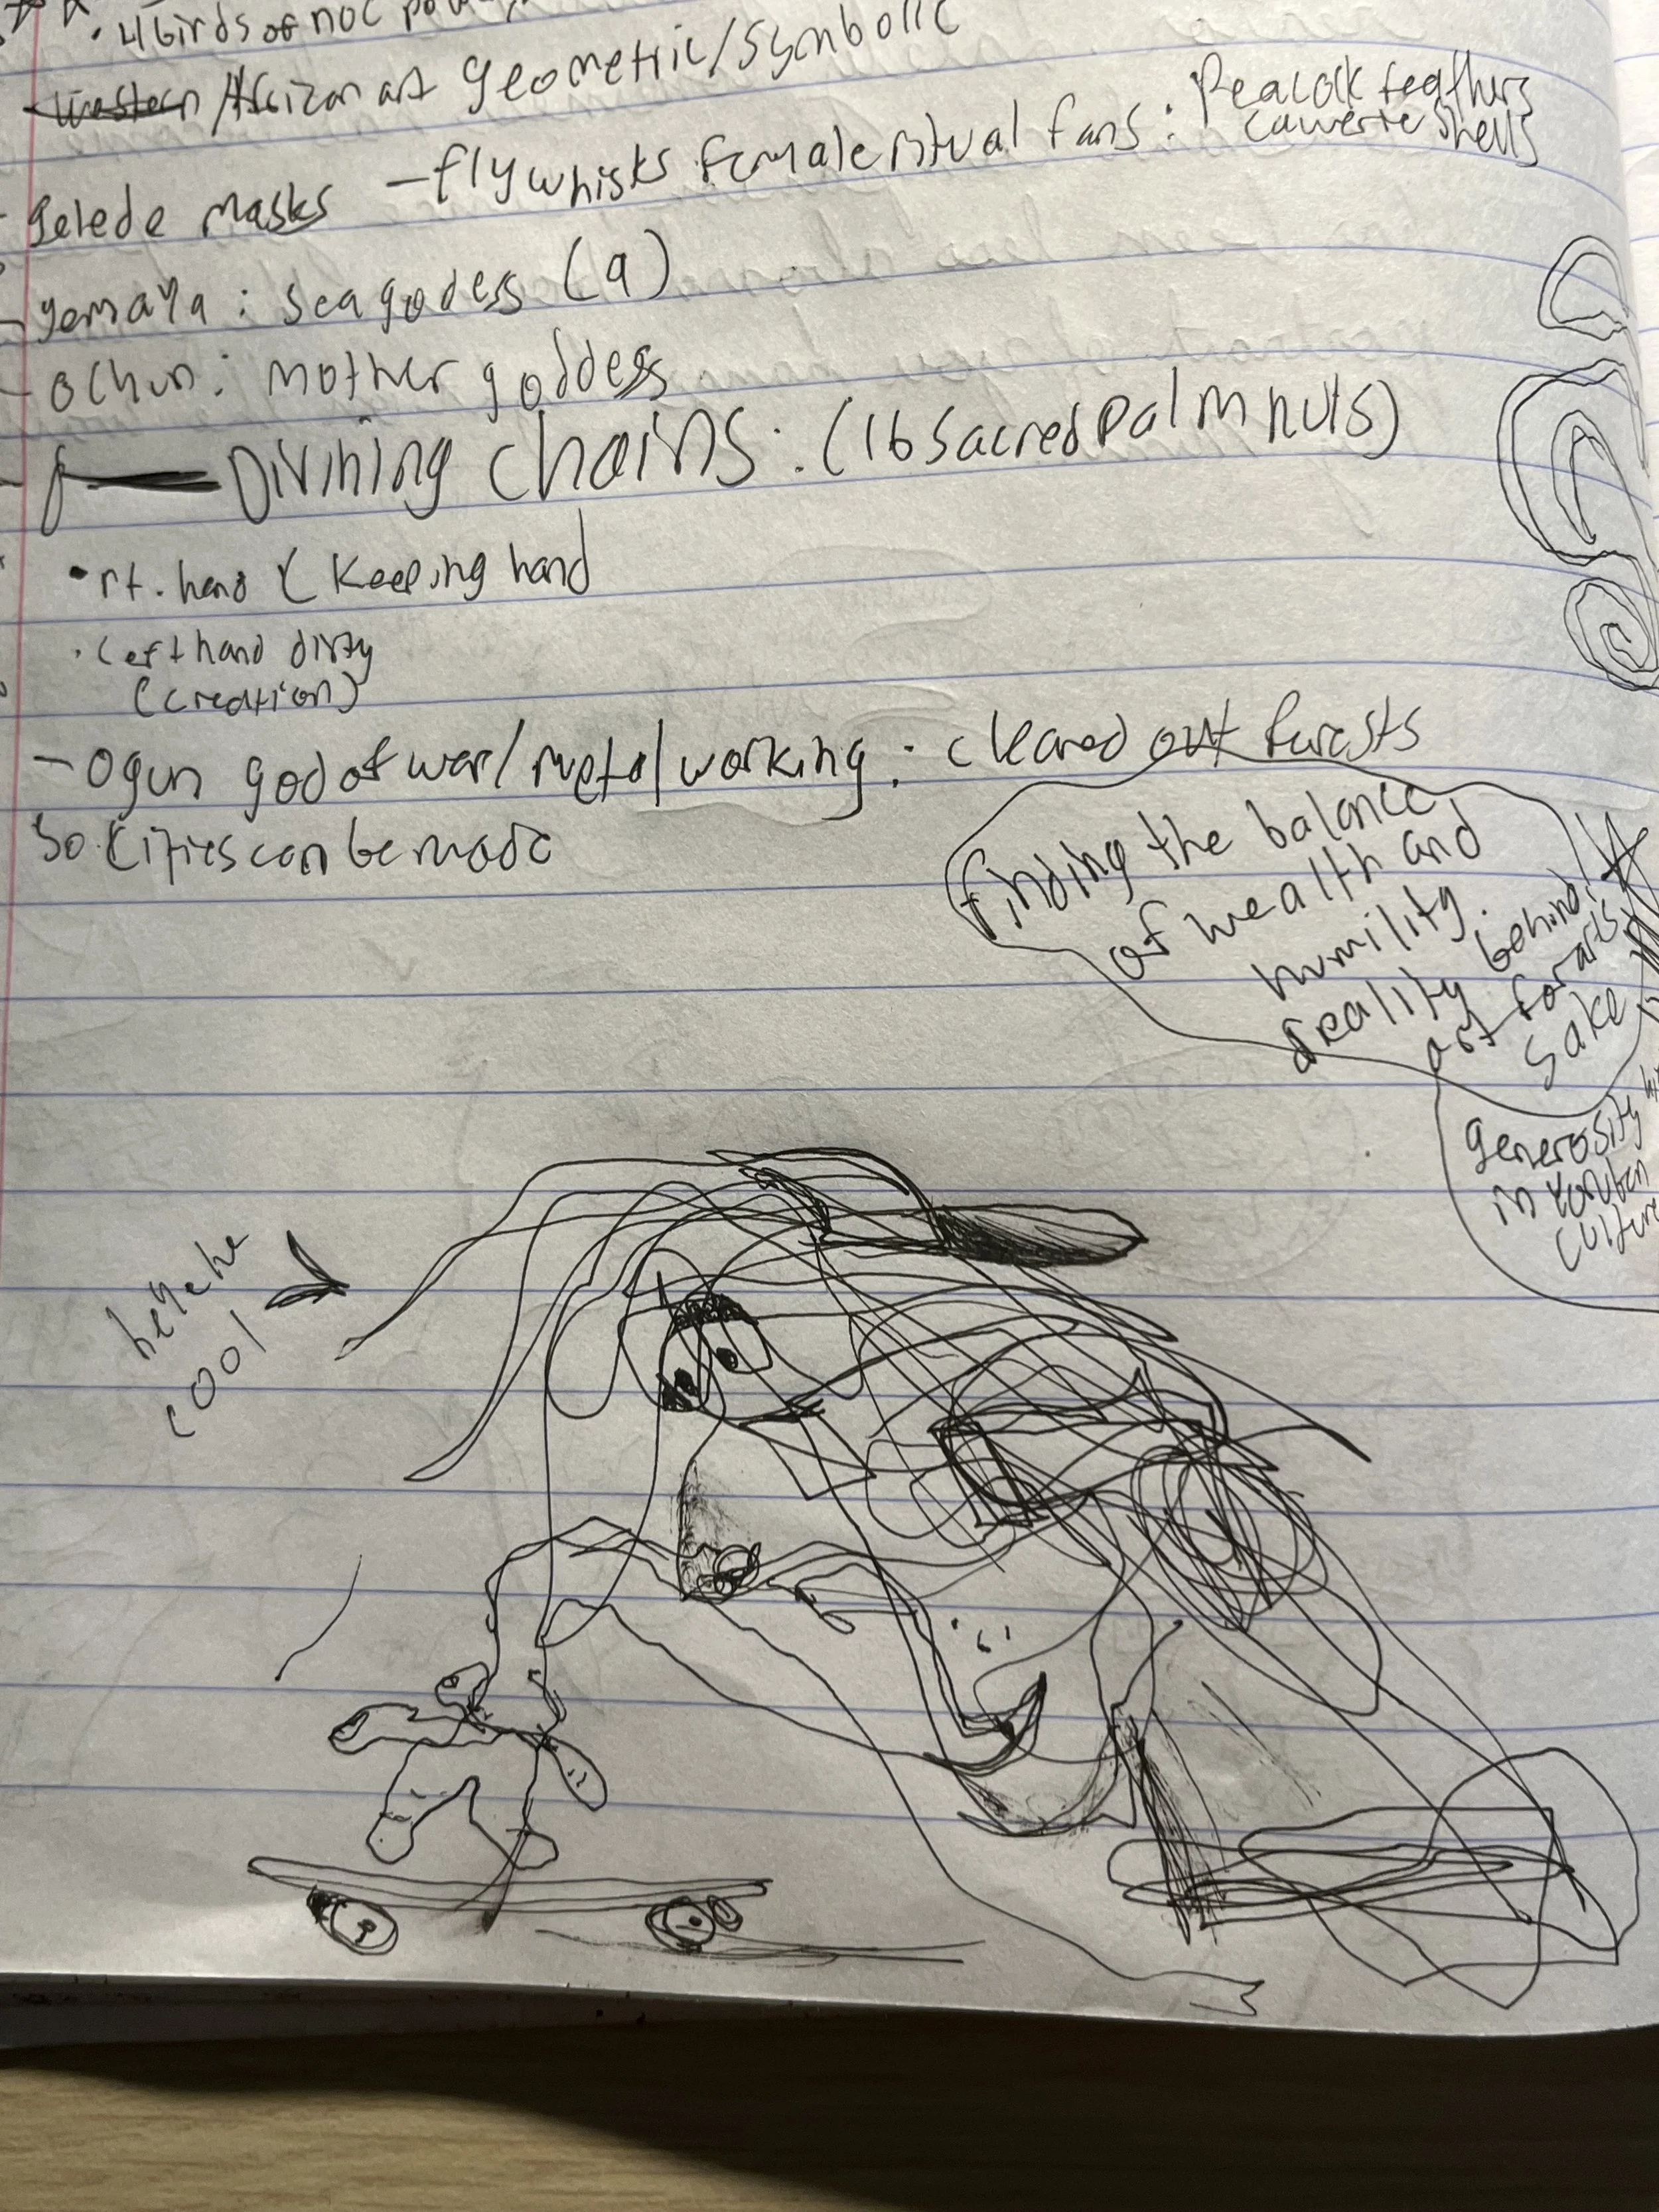 · 4 birds of noc
Western/African art geometric/symbolic
- gelede masks - flywhisks female ritual fans: Peacock feathers
cawerie shells
- yemaya: sea godess (9)
- ochun: mother goddess
- Divining chains: (16 sacred palm nuts)
· rt. hand ( keeping hand
· left hand dirty
(creation)
- Ogun god of war/metal working: cleared out forests
so cities can be made
finding the balance
of wealth and
humility.
reality behind
art for arts
sake
generosity
in Yoruban
culture
cool